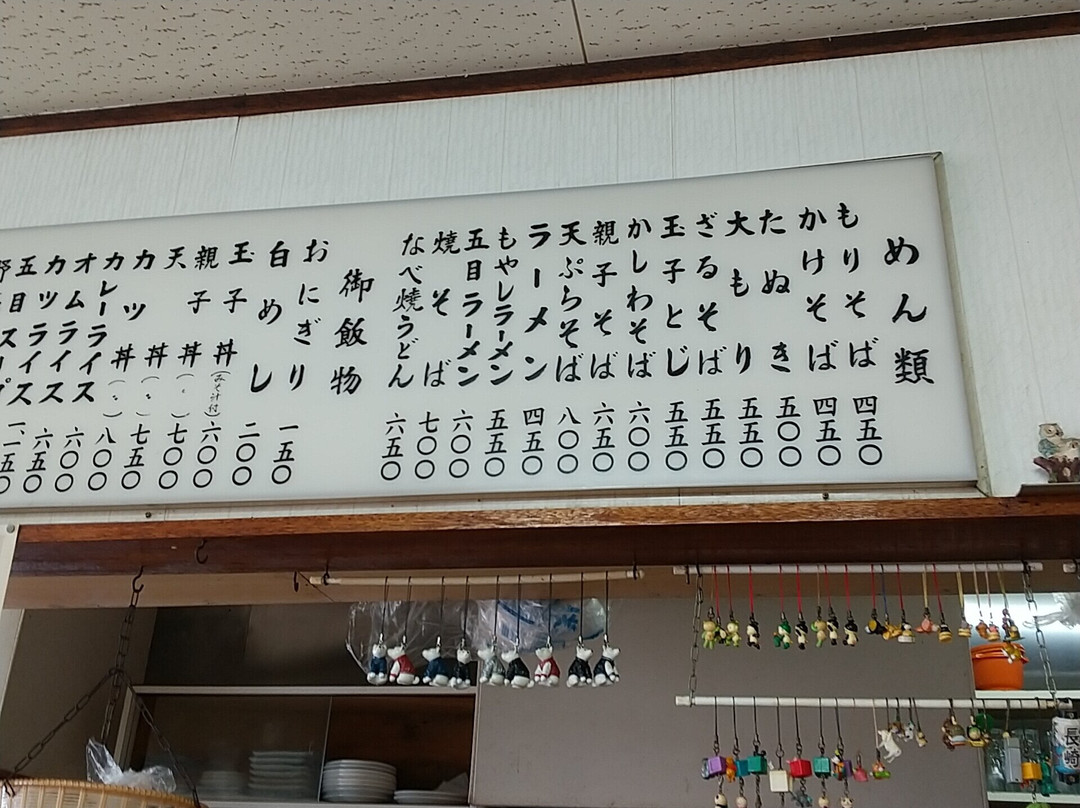 めん類
もりそば 四五〇
かけそば 四五〇
たぬき 五〇〇
大もり 五五〇
ざるそば 五五〇
玉子とじ 五五〇
かしわそば 六〇〇
親子そば 六五〇
天ぷらそば 八〇〇
ラーメン 四五〇
もやしラーメン 五五〇
五目ラーメン 六〇〇
焼そば 七〇〇
なべ焼うどん 六五〇
御飯物
おにぎり 一五〇
白めし 二〇〇
玉子丼(みそ汁付) 六〇〇
親子丼(〃) 七〇〇
天丼(〃) 七五〇
カツ丼(〃) 八〇〇
カレーライス 六〇〇
オムライス 六五〇
カツライス 一、一五〇
五目
長崎